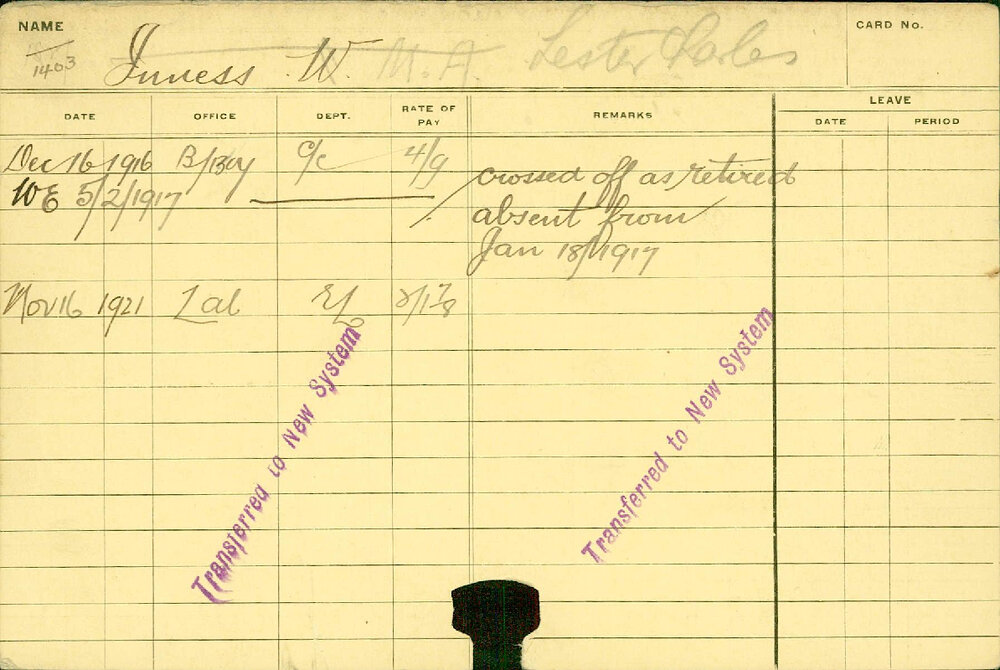 NAME
CARD No.
1403
Inness W. M. A. Lester
LEAVE
DATE OFFICE DEPT. RATE OF PAY REMARKS DATE PERIOD
Dec 16 1916 B/Boy C/c 4/9 crossed off as retired
WE 5/2/1917 absent from
Jan 18/1917
Nov 16 1921 Lab
Transferred to New System
Transferred to New System